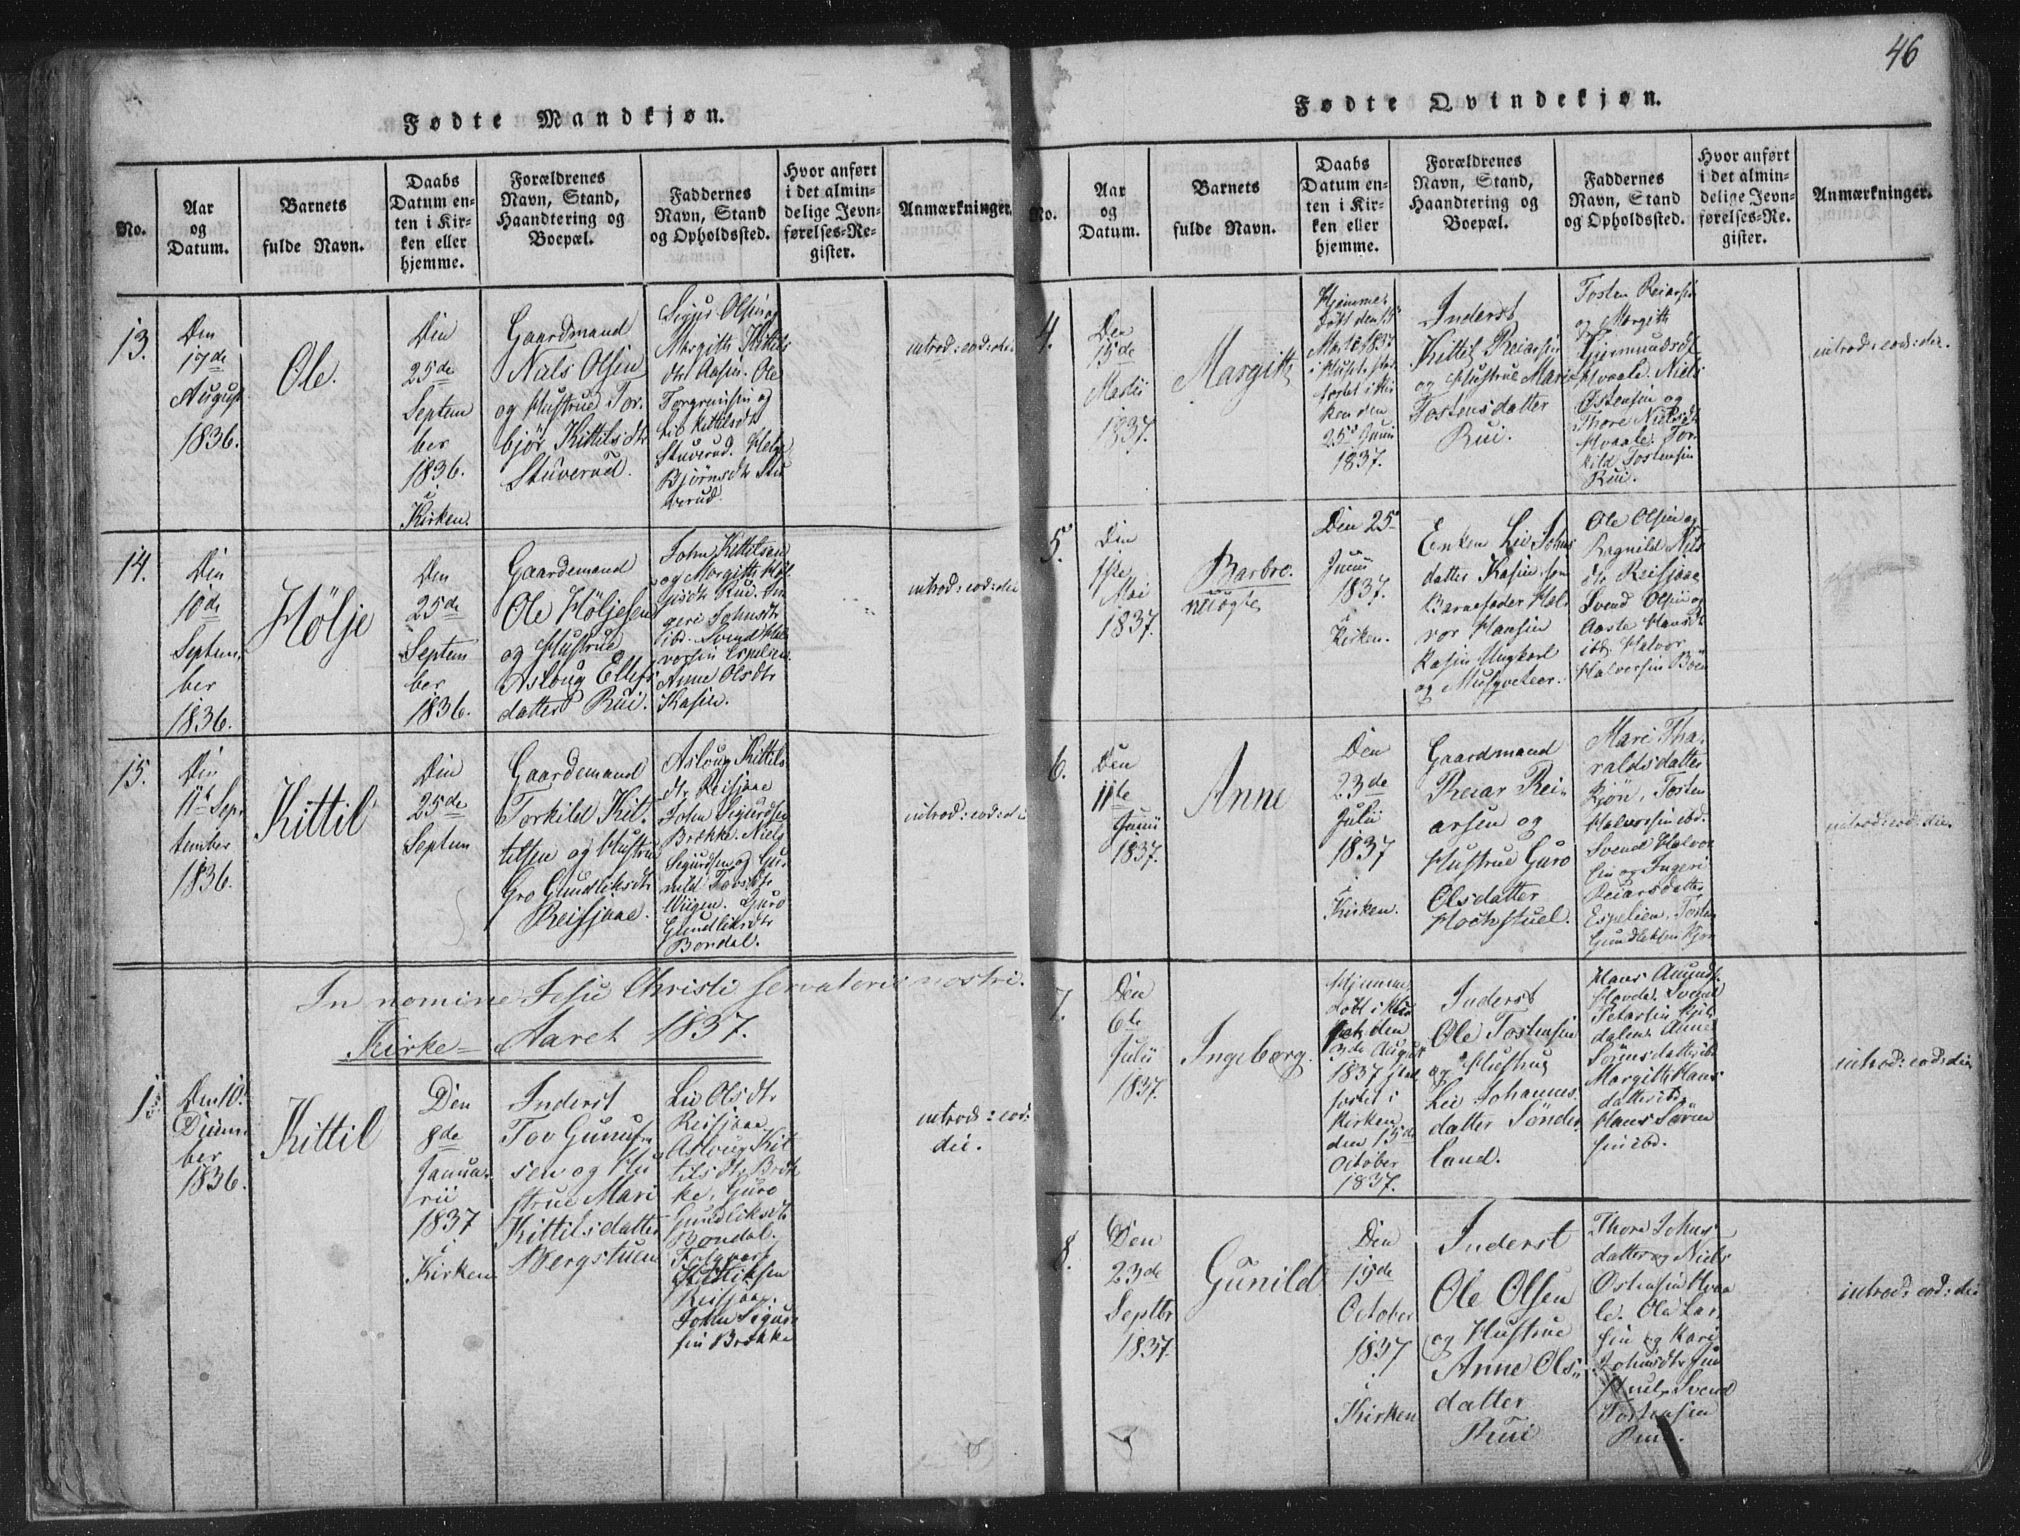 Fødte Mandkjøn.
No.
Aar
og
Datum.
Barnets
fulde Navn.
Daabs
Datum en-
ten i Kir-
ken eller
hjemme.
Forældrenes
Navn, Stand,
Haandtering og
Boepæl.
Faddernes
Navn, Stand
og Opholdssted.
Hvor anført
i det almin-
delige Jevn-
førelses-Re-
gister.
Anmærkninger.
13.
Den
17de
August
1836.
Ole.
Den
25de
Septem
ber
1836.
i
Kirken.
Gaardmand
Niels Olsen
og Hustrue Tor-
bjør Kittilsdtr
Stuverud.
Sigur Olsen og
Margith Kittils
dtr Aasen. Ole
Torgrimsen og
Liv Kittilsdtr
Stuverud. Helge
Bjørnsdtr Stu
verud.
introd: eod: die
14.
Den
10de
Septem-
ber
1836.
Hölje
Den
25de
Septem
ber
1836.
Gaardemand
Ole Höljesen
og Hustrue
Asloug Ellefs
datter Rui.
John Kittilsen
og Margith Höl
jisdtr Rui. In
geri Johnsdtr
ibd. Svend Hal
vorsen Espelien
Anne Olsdtr
Kasin.
introd: eod: die
15.
Den
11te Sep
tember
1836.
Kittil
Den
25de
Septem
Gaardemand
Torkild Kit-
tilsen og Hustrue
Gro Gundliksdtr
Reisjaae.
Asloug Kittils
dtr Reisjaae
John Sigurdsen
Brække. Niels
Sigurdsen og Gu
nild Tovsdtr
Wiigen. Guro
Gundliksdtr
Bondal.
introd: eod: die
In nomine Jesu Christi servatoris nostri.
Kirke- Aaret 1837.
1.
Den 10.
Decem
ber
1836.
Kittil
Den
8de
Janua-
rii
1837
i
Kirken
Inderst
Tov Gunuf
sen og Hu
strue Mari
Kittilsdatter
Bergstuen
Liv Olsdtr
Reisjaae
Asloug Kit
tilsdtr Bræk
ke, Guro
Gundliksdtr
Bondal.
Kittilsen
Reisjaae.
John Sigur
sen Brække
introd: eod:
die.
46
Fødte Qvindekjøn.
No.
Aar
og
Datum.
Barnets
fulde Navn.
Daabs
Datum en-
ten i Kir-
ken eller
hjemme.
Forældrenes
Navn, Stand,
Haandtering og
Boepæl.
Faddernes
Navn, Stand
og Opholdssted.
Hvor anført
i det almin-
delige Jevn-
førelses-Re-
gister.
Anmærkninger.
4.
Den
15de
Martii
1837.
Margith
Hjemme-
døbt den
Kir
ken den
25de Junii
1837.
Inderst
Kittil Reiarsen
og Hustrue Mari
Tostensdatter
Rui.
Tosten Reiarsen
og Margith
Gjermundsdtr
Hvaale. Niels
Østensen og
Thore Nielsdtr
Hvaale. Tor-
kild Tostensen
Rui.
introd: eod: die.
5.
Den
1ste
Mai
1837.
Barbro.
uægte
Den 25
Junii
1837.
i
Kirken.
Enken Liv Johns
datter Kasin, som
Barnefader Hal
vor Hansen
Kasin Ungkarl
og Musqveteer.
Ole Olsen og
Ragnild Niels
dtr Reisjaae
Svend Olsen og
Aaste Hansdtr
ibd. Halvor
Halvorsen Böen
6.
Den
11te
Junii
1837.
Anne
Den
23de
Julii
1837
i
Kirken.
Gaardmand
Reiar Rei-
arsen og
Hustrue Guro
Olsdatter
Hochstuel.
Mari Tha-
raldsdatter
Kjön, Tosten
Halvorsen ibd.
Svend Halvor
sen og Ingeri
Reiarsdatter
Espelien, Tosten
Gundleksen Kjön
introd: eod: die.
7.
Den
6te
Julii
1837.
Ingeborg.
Hjemme
døbt i Kir
den
3de August
1837 stad
fæstet i
Kirken
den 15de
October
1837.
Inderst
Ole Tostensen
og Hustrue
Liv Johannes
datter Sønder
land.
Hans Amunds.
Hovde. Svend
Petersen Gjel
dalen. Anne
Sørensdatter ibd.
Margith Hans
datter ibd.
Hans Søren
sen ibd.
introd: eod: die
8.
Den
23de
Septbr
1837.
Gunild
Den
15de
October
1837
i
Kirken
Inderst
Ole Olsen
og Hustrue
Anne Ols-
datter
Rui
Thore Johns
datter og Niels
Østensen Hvaa
le. Ole Lar-
sen og Kari
Johnsdtr
Svend
Tostensen
Rui.
introd: eod: die